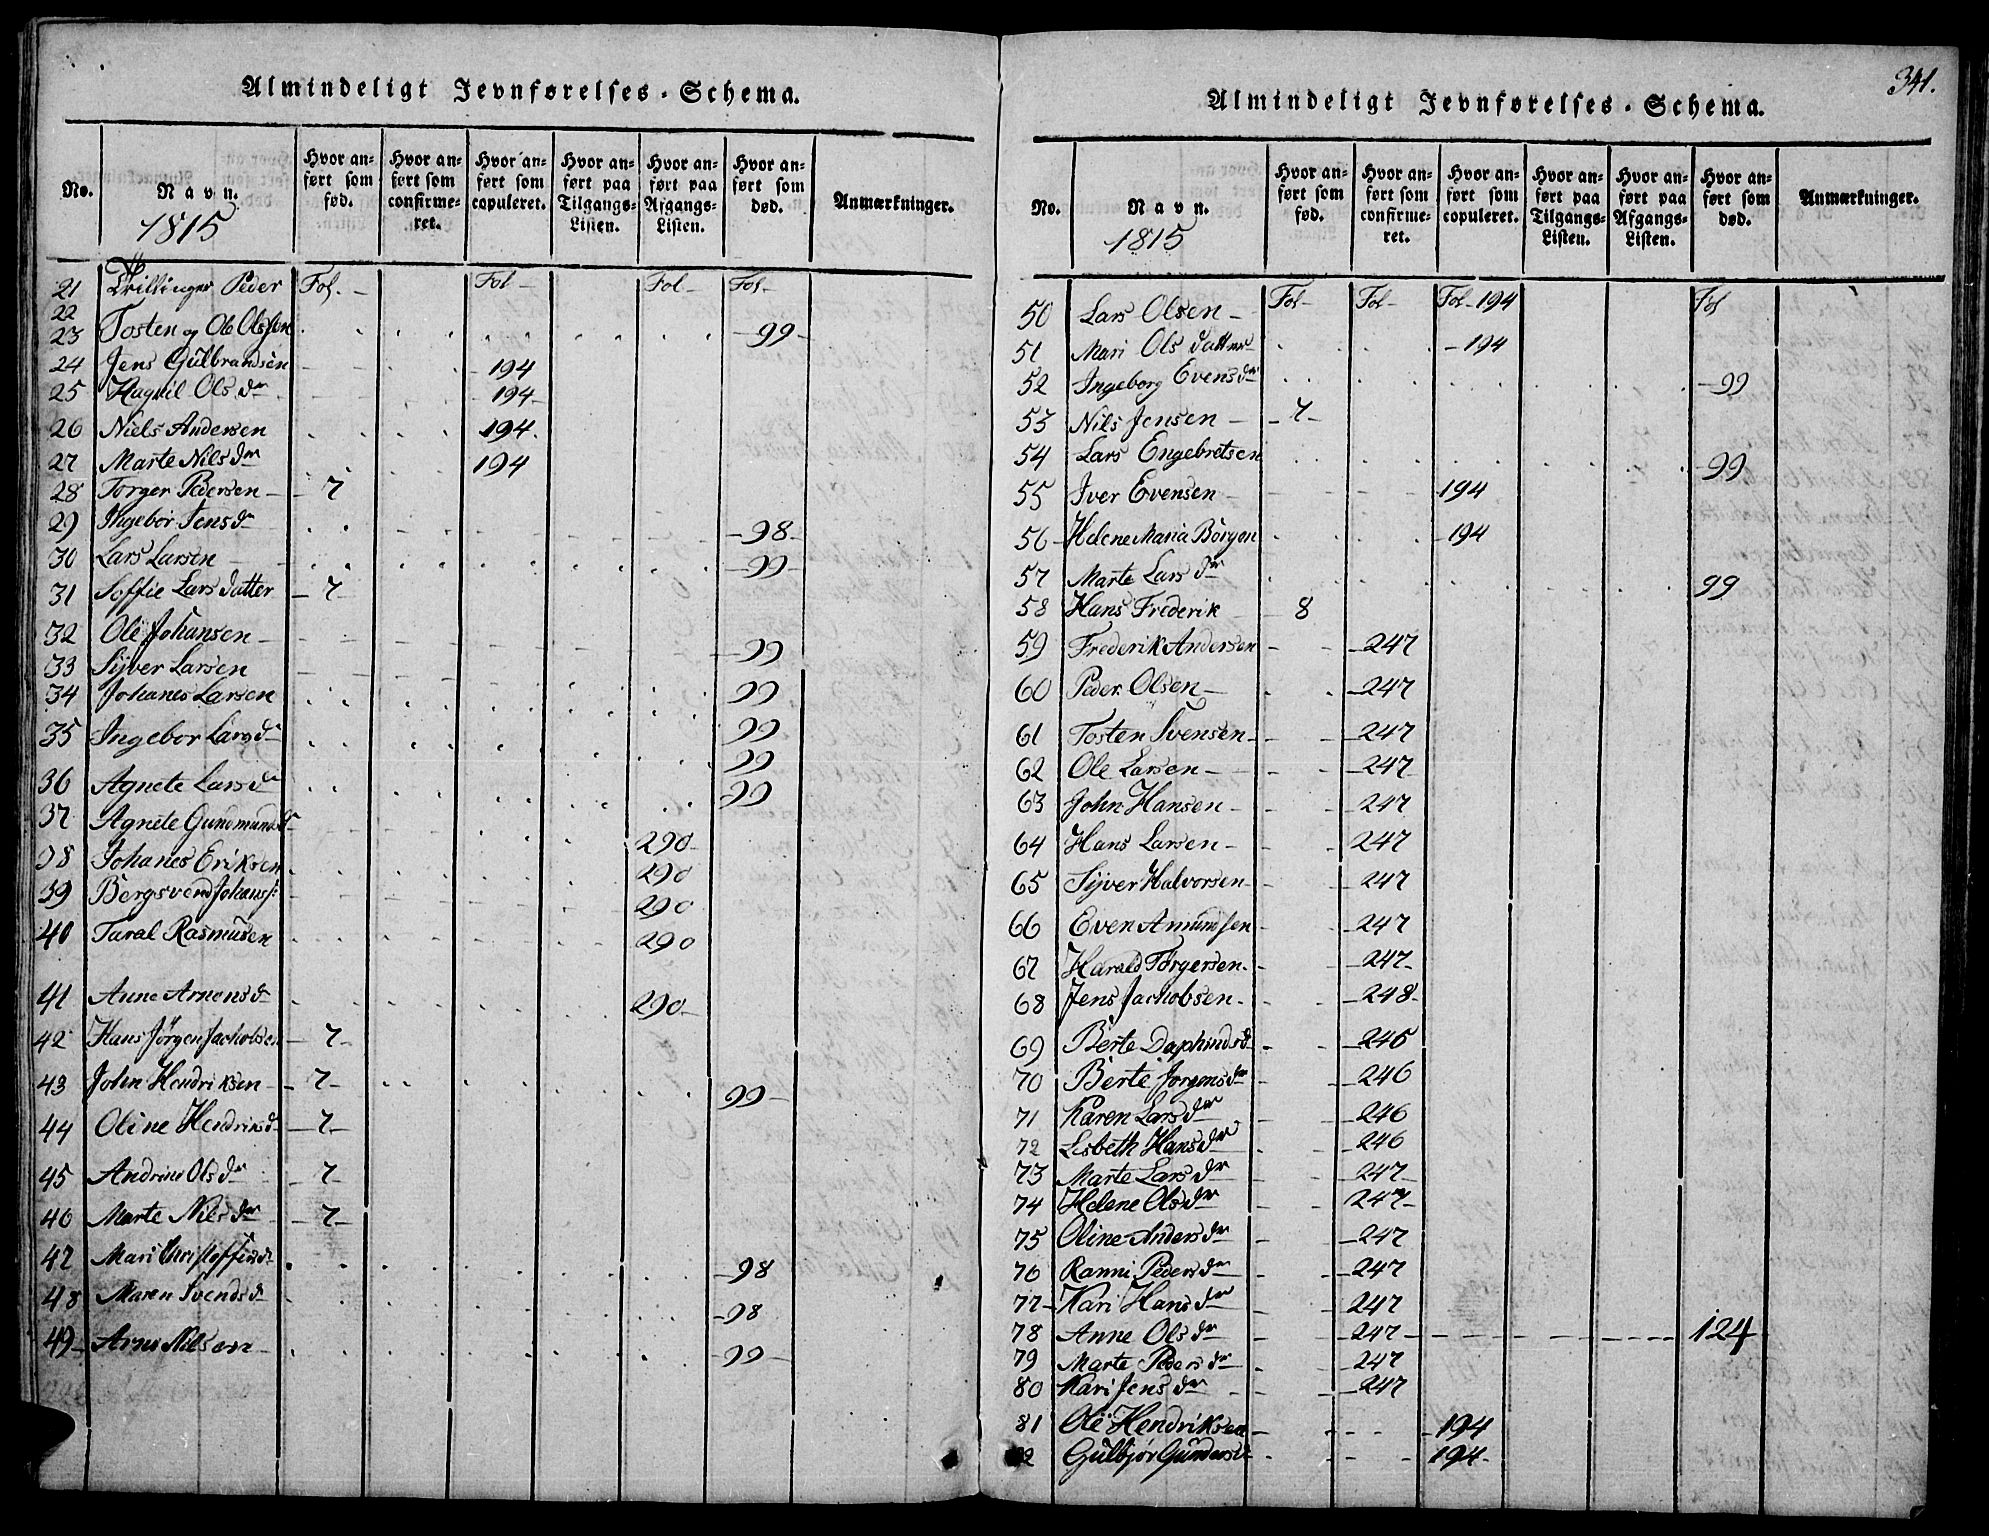 341.
Almindeligt Jevnførelses-Schema.
No.
Navn.
1815
Hvor anført som fød.
Hvor anført som confirmeret.
Hvor anført som copuleret.
Hvor anført paa Tilgangs-Listen.
Hvor anført paa Afgangs-Listen.
Hvor anført som død.
Anmærkninger.
21 Trillinger Peder Fol. - Fol - Fol - Fol -
22
23 Tosten og Ole Olssen - 99 -
24 Jens Gulbrandsen - 194
25 Ols dr - 194 -
26 Niels Andersen 194.
27 Marte Nils dr 194
28 Torger Pedersen - 7
29 Ingebor Jens dr - 98 -
30 Lars Larsen - 99 -
31 Soffie Lars datter - 7
32 Ole Johansen - 99
33 Sijver Larsen 99
34 Johanes Larsen 99
35 Ingebor Lars dr 99
36 Agnete Lars dr 99
37 Agnete Gundmunds dr 290 -
38 Johanes Eriksen 290
39 Bergsvend Johans: 290
40 Taral Rasmusen 290
41 Anne Arnens dr 290 -
42 Hans Jörgen Jachobsen 7 -
43 John Hendriksen - 7 - 99 -
44 Oline Hendriks dr - 7 -
45 Andrine Ols dr 7 -
46 Marte Nils dr - 7 -
47 Mari Christoffers dr - 98
48 Maren Svends dr - 98
49 - Arne Nilsen - 99 -
Almindeligt Jevnførelses-Schema.
No.
Navn.
1815
Hvor anført som fød.
Hvor anført som confirmeret.
Hvor anført som copuleret.
Hvor anført paa Tilgangs-Listen.
Hvor anført paa Afgangs-Listen.
Hvor anført som død.
Anmærkninger.
50 Lars Olsen - Fol - Fol - Fol - 194 Fol
51 Mari Ols datter - 194
52 Ingeborg Evens dr - 99
53 Nils Jensen - - 7 -
54 Lars Engebretsen - 99
55 Iver Evensen 194
56 - Helene Maria Börgen - 194
57 Marte Lars dr 99
58 Hans Frederik 8
59 Frederik Andersen - 247
60 Peder Olsen - - 247
61 Tosten Svensen - - 247
62 Ole Larsen - - 247
63 John Hansen - - 247
64 Hans Larsen - 247
65 Sijver Halvorsen - - 247
66 Even Amundsen - 247
67 Harald Torgersen - - 247 -
68 Jens Jachobsen - - 248 -
69 Berte Daphinds dr - 246
70 Berte Jorgens dr - 246
71 Karen Lars dr - 246
72 Lisbeth Hans dr - 246
73 Marte Lars dr - 247 -
74 Helene Ols dr 247 -
75 Oline Anders dr - 247
76 Ranni Peders dr - 247
77 - Kari Hans dr 247
78 Anne Ols dr - 247 - 124
79 Marte Peders dr - 247
80 Kari Jens dr - 247
81 Ole Hendriksen - 194
82 Gulbjör Gunders dr 194 -